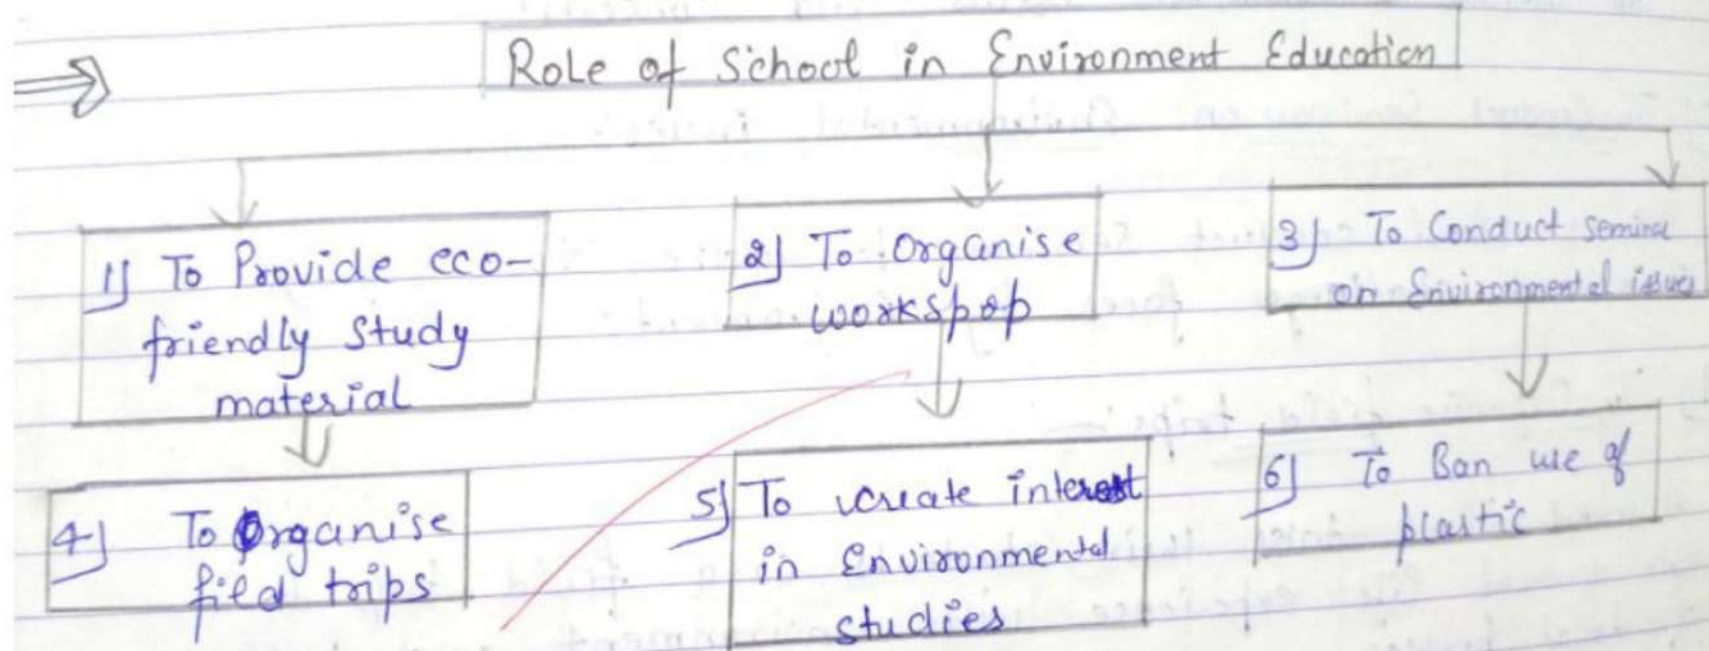 Role of School in Environment Education
1) To Provide eco-
friendly study
material
2) To Organise
workspop
3) To Conduct
on Environmental issues
4) To Organise
fied trips
5) To create interest
in Environmental
studies
6) To Ban use of
plastic